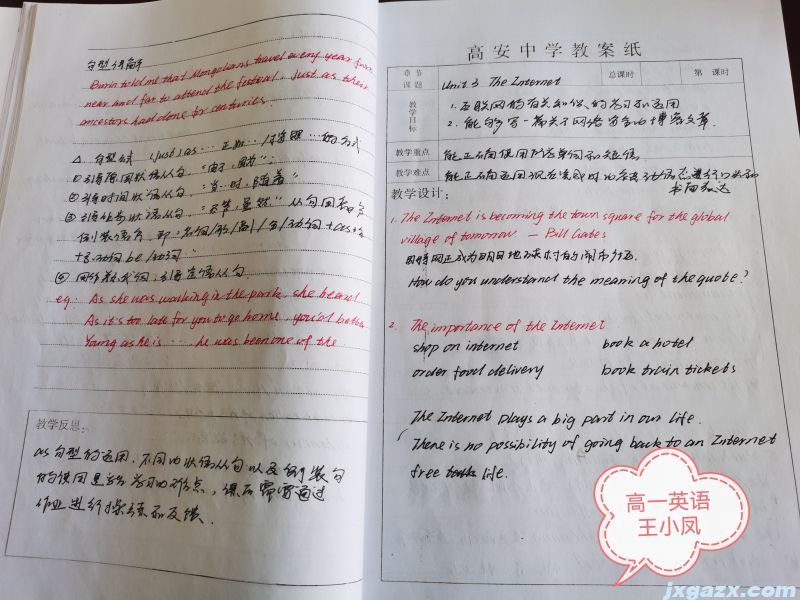 句型讲解
Burin told me that Mongolians travel every year from
near and far to attend the festival, just as their
ancestors had done for centuries.
△ 句型公式 (just) as … 正如…/按照…的方式
① 引导原因状语从句, "由于, 因为";
② 引导时间状语从句, "当…时, 随着"
③ 引导让步状语从句, "尽管, 虽然" 从句用
倒装语序, 即 "名词/形/副/ 动词 + as +
+ 动词 be /动词
④ 用作关系代词, 引导定语从句
eg: As she was walking in the park, she heard
As it's too late for you to go home, you'd better
Young as he is ……, he was been one of the
教学反思:
as 句型的运用, 不同的状语从句以及倒装句
的使用是学习的难点, 课后需要通过
作业进行操练和反馈.
高安中学教案纸
章节
课题
Unit 3 The Internet
总课时
第 课时
教学目标
1. 互联网的有关知识的学习和运用
2. 能够写一篇关于网络安全的博客文章.
教学重点
能正确使用所学单词和短语
教学难点
能正确运用现在完成时的被动语态进行口头和
书面表达
教学设计:
1. The Internet is becoming the town square for the global
village of tomorrow — Bill Gates
因特网正成为明日地球村的闹市
How do you understand the meaning of the quote?
2. The importance of the Internet
shop on internet book a hotel
order food delivery book train tickets
The Internet plays a big part in our life.
There is no possibility of going back to an Internet
free life.
高一英语
王小凤
jxgazx.com